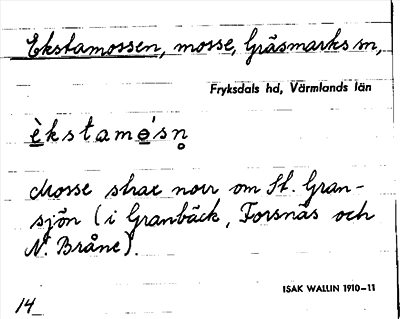 Ekstamossen, mosse, Gräsmarks sn,
Fryksdals hd, Värmlands län
è̱kstamo̱'sn̥
Mosse strax norr om St. Gran-
sjön (i Granbäck, Forsnäs och
N. Bråne).
ISAK WALLIN 1910-11
14